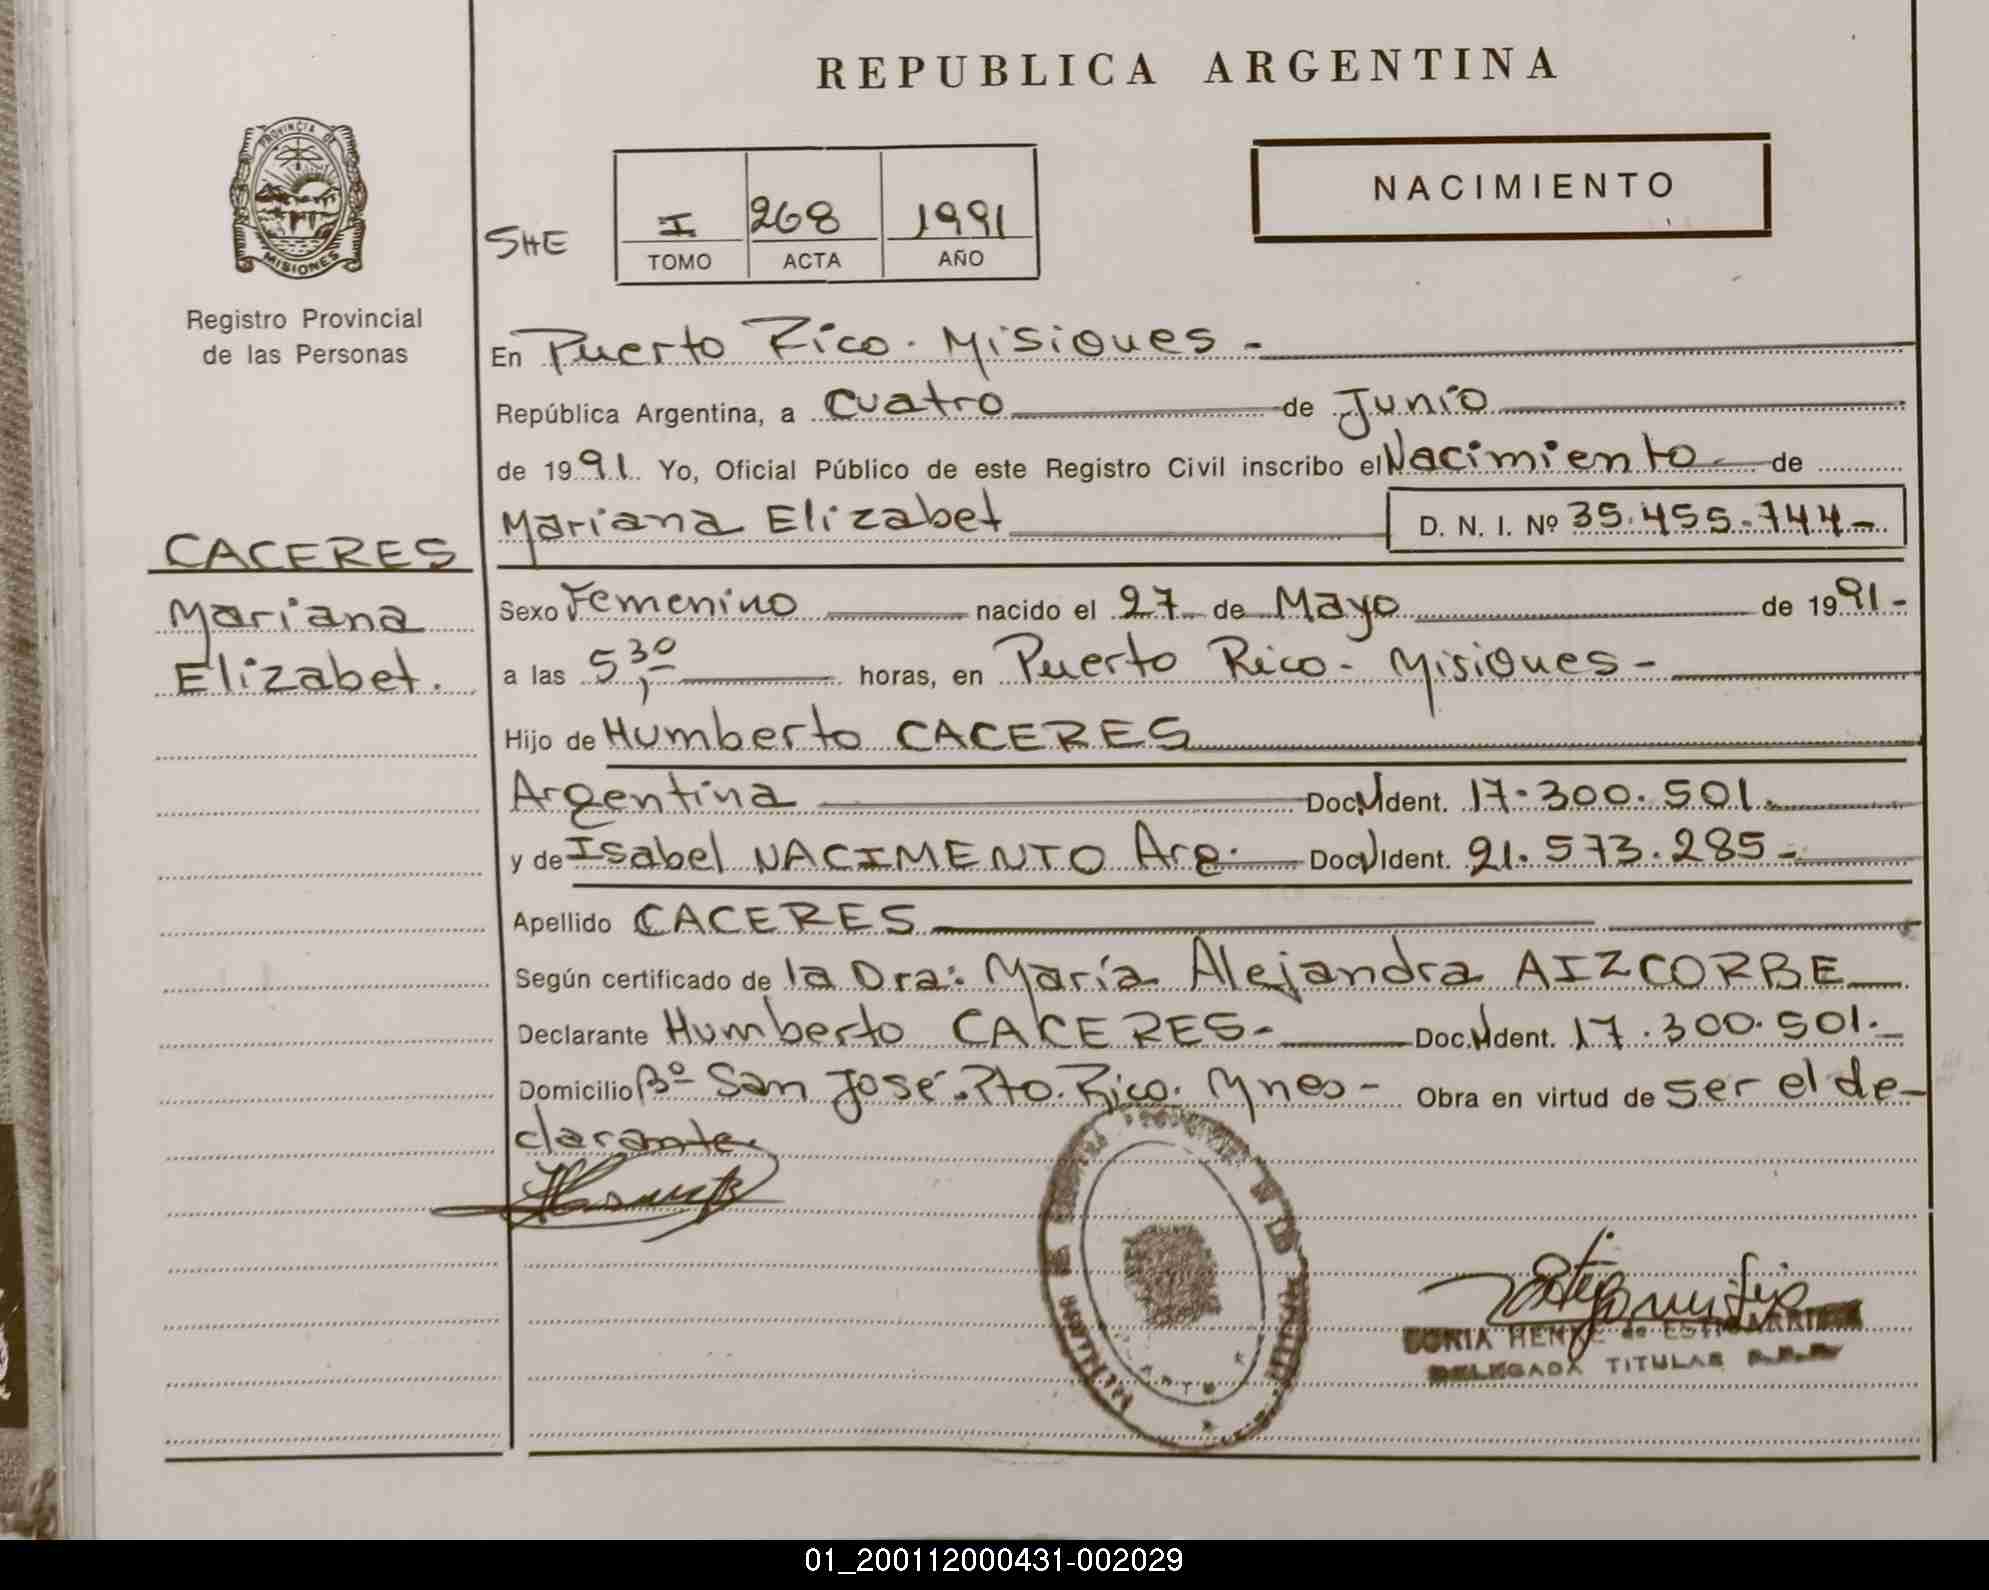 REPUBLICA ARGENTINA
PROVINCIA DE MISIONES
Registro Provincial
de las Personas
SHE
I 268 1991
TOMO ACTA AÑO
NACIMIENTO
En Puerto Rico. Misiones -
República Argentina, a Cuatro de Junio
de 1991. Yo, Oficial Público de este Registro Civil inscribo el Nacimiento de
Mariana Elizabet D. N. I. Nº 35.455.744-
CACERES
Mariana
Elizabet.
Sexo Femenino nacido el 27 de Mayo de 1991-
a las 5,30 horas, en Puerto Rico - Misiones -
Hijo de Humberto CACERES
Argentina Doc. Ident. 17.300.501.
y de Isabel NACIMENTO Arg. Doc. Ident. 21.573.285-
Apellido CACERES
Según certificado de la Dra: María Alejandra AIZCORBE
Declarante Humberto CACERES- Doc. Ident. 17.300.501.-
Domicilio Bº San José. Pto. Rico. Mnes - Obra en virtud de ser el de-
clarante.
SONIA HENKE de
DELEGADA TITULAR
01_200112000431-002029